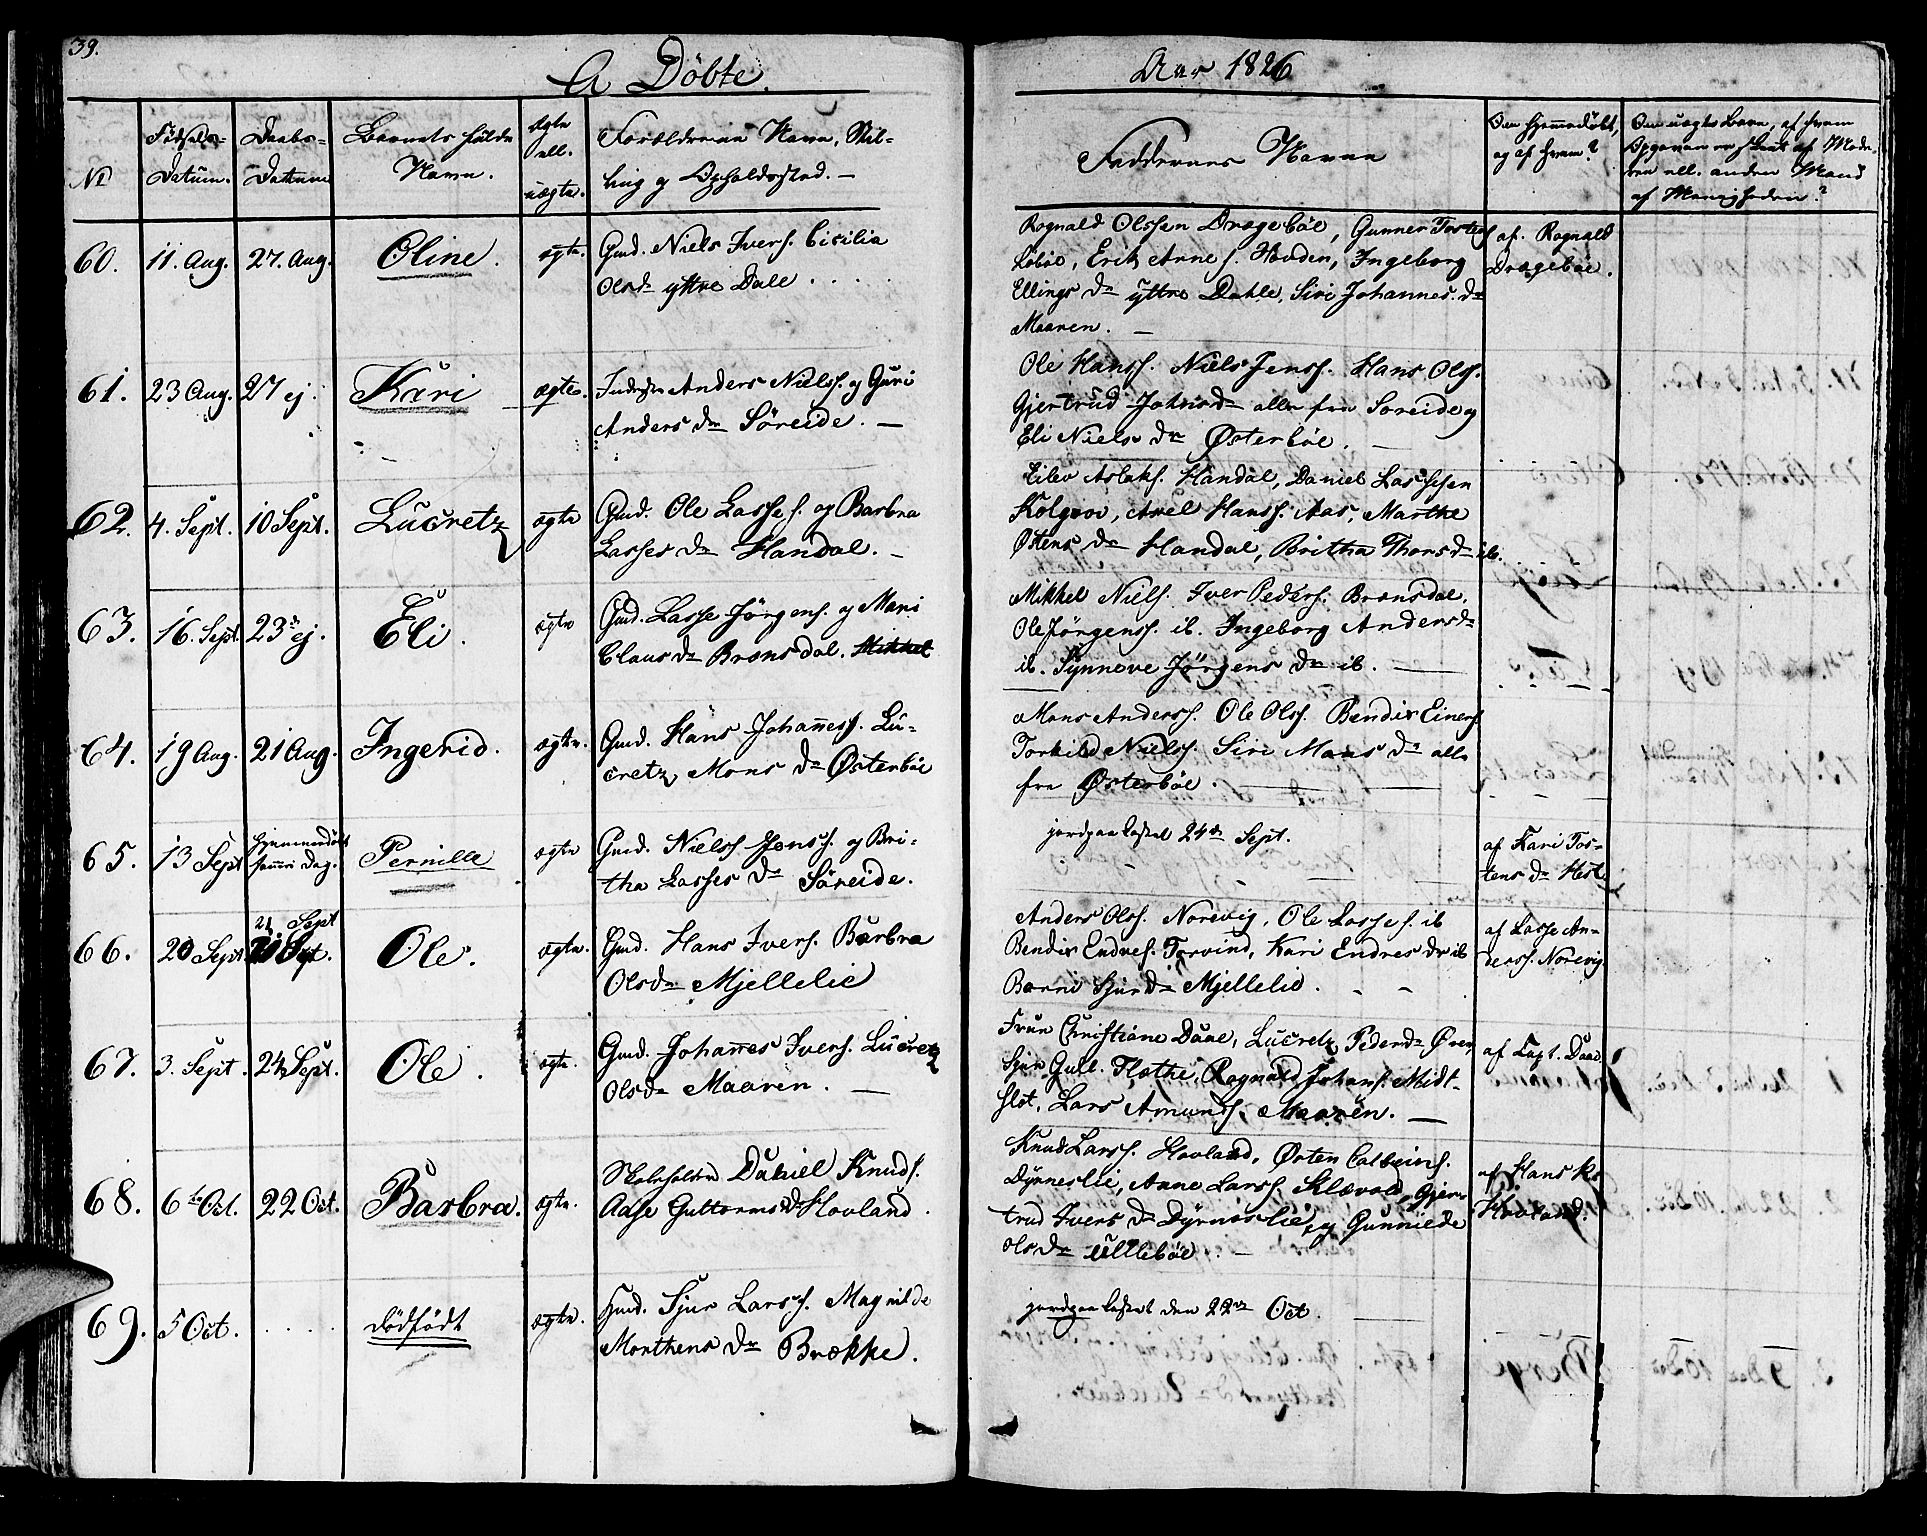 39.
A Döbte.
Aar 1826
No
Födsels-
Datum.
Daabs-
Dattum
Barnets fulde
Navn.
ægte
ell.
uægte.
Forældrenes Navn, Stil-
ling og Opholdssted. —
Faddernes Navne
Om hjemmedöbt,
og af hvem?
Om uægte Barn, af hvem
Opgaven er skeet af Mode-
ren ell. anden Mand
af Menigheden?
60. 11. Aug. 27. Aug. Oline. ægte. Gmd. Niels Ivers. Cicilia
Olsdr yttre Dale . . . .
Rognald Olssen Dragebøe, Gunner Torstens
Købøe, Erik Arnes. Hovden, Ingeborg
Ellings Dr yttre Dahle, Siri Johannes. Dr
Maaren. —
af. Rognald
Dragebøe.
61. 23 Aug. 27 ej. Kari ægte. Inderster Anders Nielss. og Guri
Anders Dr Söreide. —
Ole Hanss. Niels Jenss. Hans Ols.
Gjertrud Johnsdr alle fra Soreide og
Eli Niels Dr Østerbøe. —
62. 4. Sept. 10 Sept. Lucretz ægte Gmd. Ole Lasses. og Barbra
Lasses Dr Handal. —
Eilev Aslaks. Handal, Daniel Lasssen
Kolgrov, Axel Hanss. Aas, Marthe
Østens Dr Handal, Britha Thors Dr ib.
63. 16. Sept. 23 ej. Eli. ægte Gmd. Lasse Jörgens. og Mari
Claus Dr Brænsdal. Mikkel
Mikkel Niels. Iver Peders. Brænsdal.
Ole Jörgenss. ib. Ingeborg Andersdr
ib. Synneve Jörgens Dr ib. —
64. 19 Aug. 21 Aug. Ingerid. ægte. Gmd. Hans Johanness. Lu-
cretz Mons Dr Østerbøe
Mons Anderss. Ole Olss. Bendix Einers.
Torkild Nielss. Siri Mons Dr alle
fra Østerbøe.
65. 13 Sept hjemmedöbt
samme Dag. Pernille ægte Gmd. Nielss Jenss. og Bri-
tha Lasses Dr Söreide.
jordpaakastet 24de Sept.
af Kari Tos-
tens Dr Hest
66. 20 Sept 21 Sept
Sept. Ole. ægte. Gmd. Hans Ivers. Barbra
Olsdr Mjellelie
Anders Olss. Norevig, Ole Lasses. ib
Bendix Endres. Torvind, Kari Endres dr ib
Barni Sjurdr Mjellelid. — —
af Lasse An-
derss. Norevig
67. 3. Sept. 24 Sept. Ole. ægte. Gmd. Johannes Ivers. Lucretz
Olsdr Maaren. —
Frue Christiane Daae, Lucretz Pedersdr Øren,
Sjur Gull. Flathe, Rognald Johans. Midt-
flot, Lars Amunds. Maaren. —
af Capt. Daae
68. 6te Oct. 22 Oct. Barbra. ægte. Skoleholder Daniel Knuds.
Aase Guttorms Dr Hovland.
Knud Larss. Hovland, Østen Colbeins.
Dynneslie, Anne Larss. Klævold, Gjer-
trud Ivers Dr Dyrneslie, og Gunnilde
olsdr Ullebøe. —
af Hans Ks.
Hovland.
69. 5 Oct. . . . . dödfödt ægte. Hmd. Sjur Larss. Magnilde
Morthens Dr Brække.
jordpaakastet den 22de Oct.